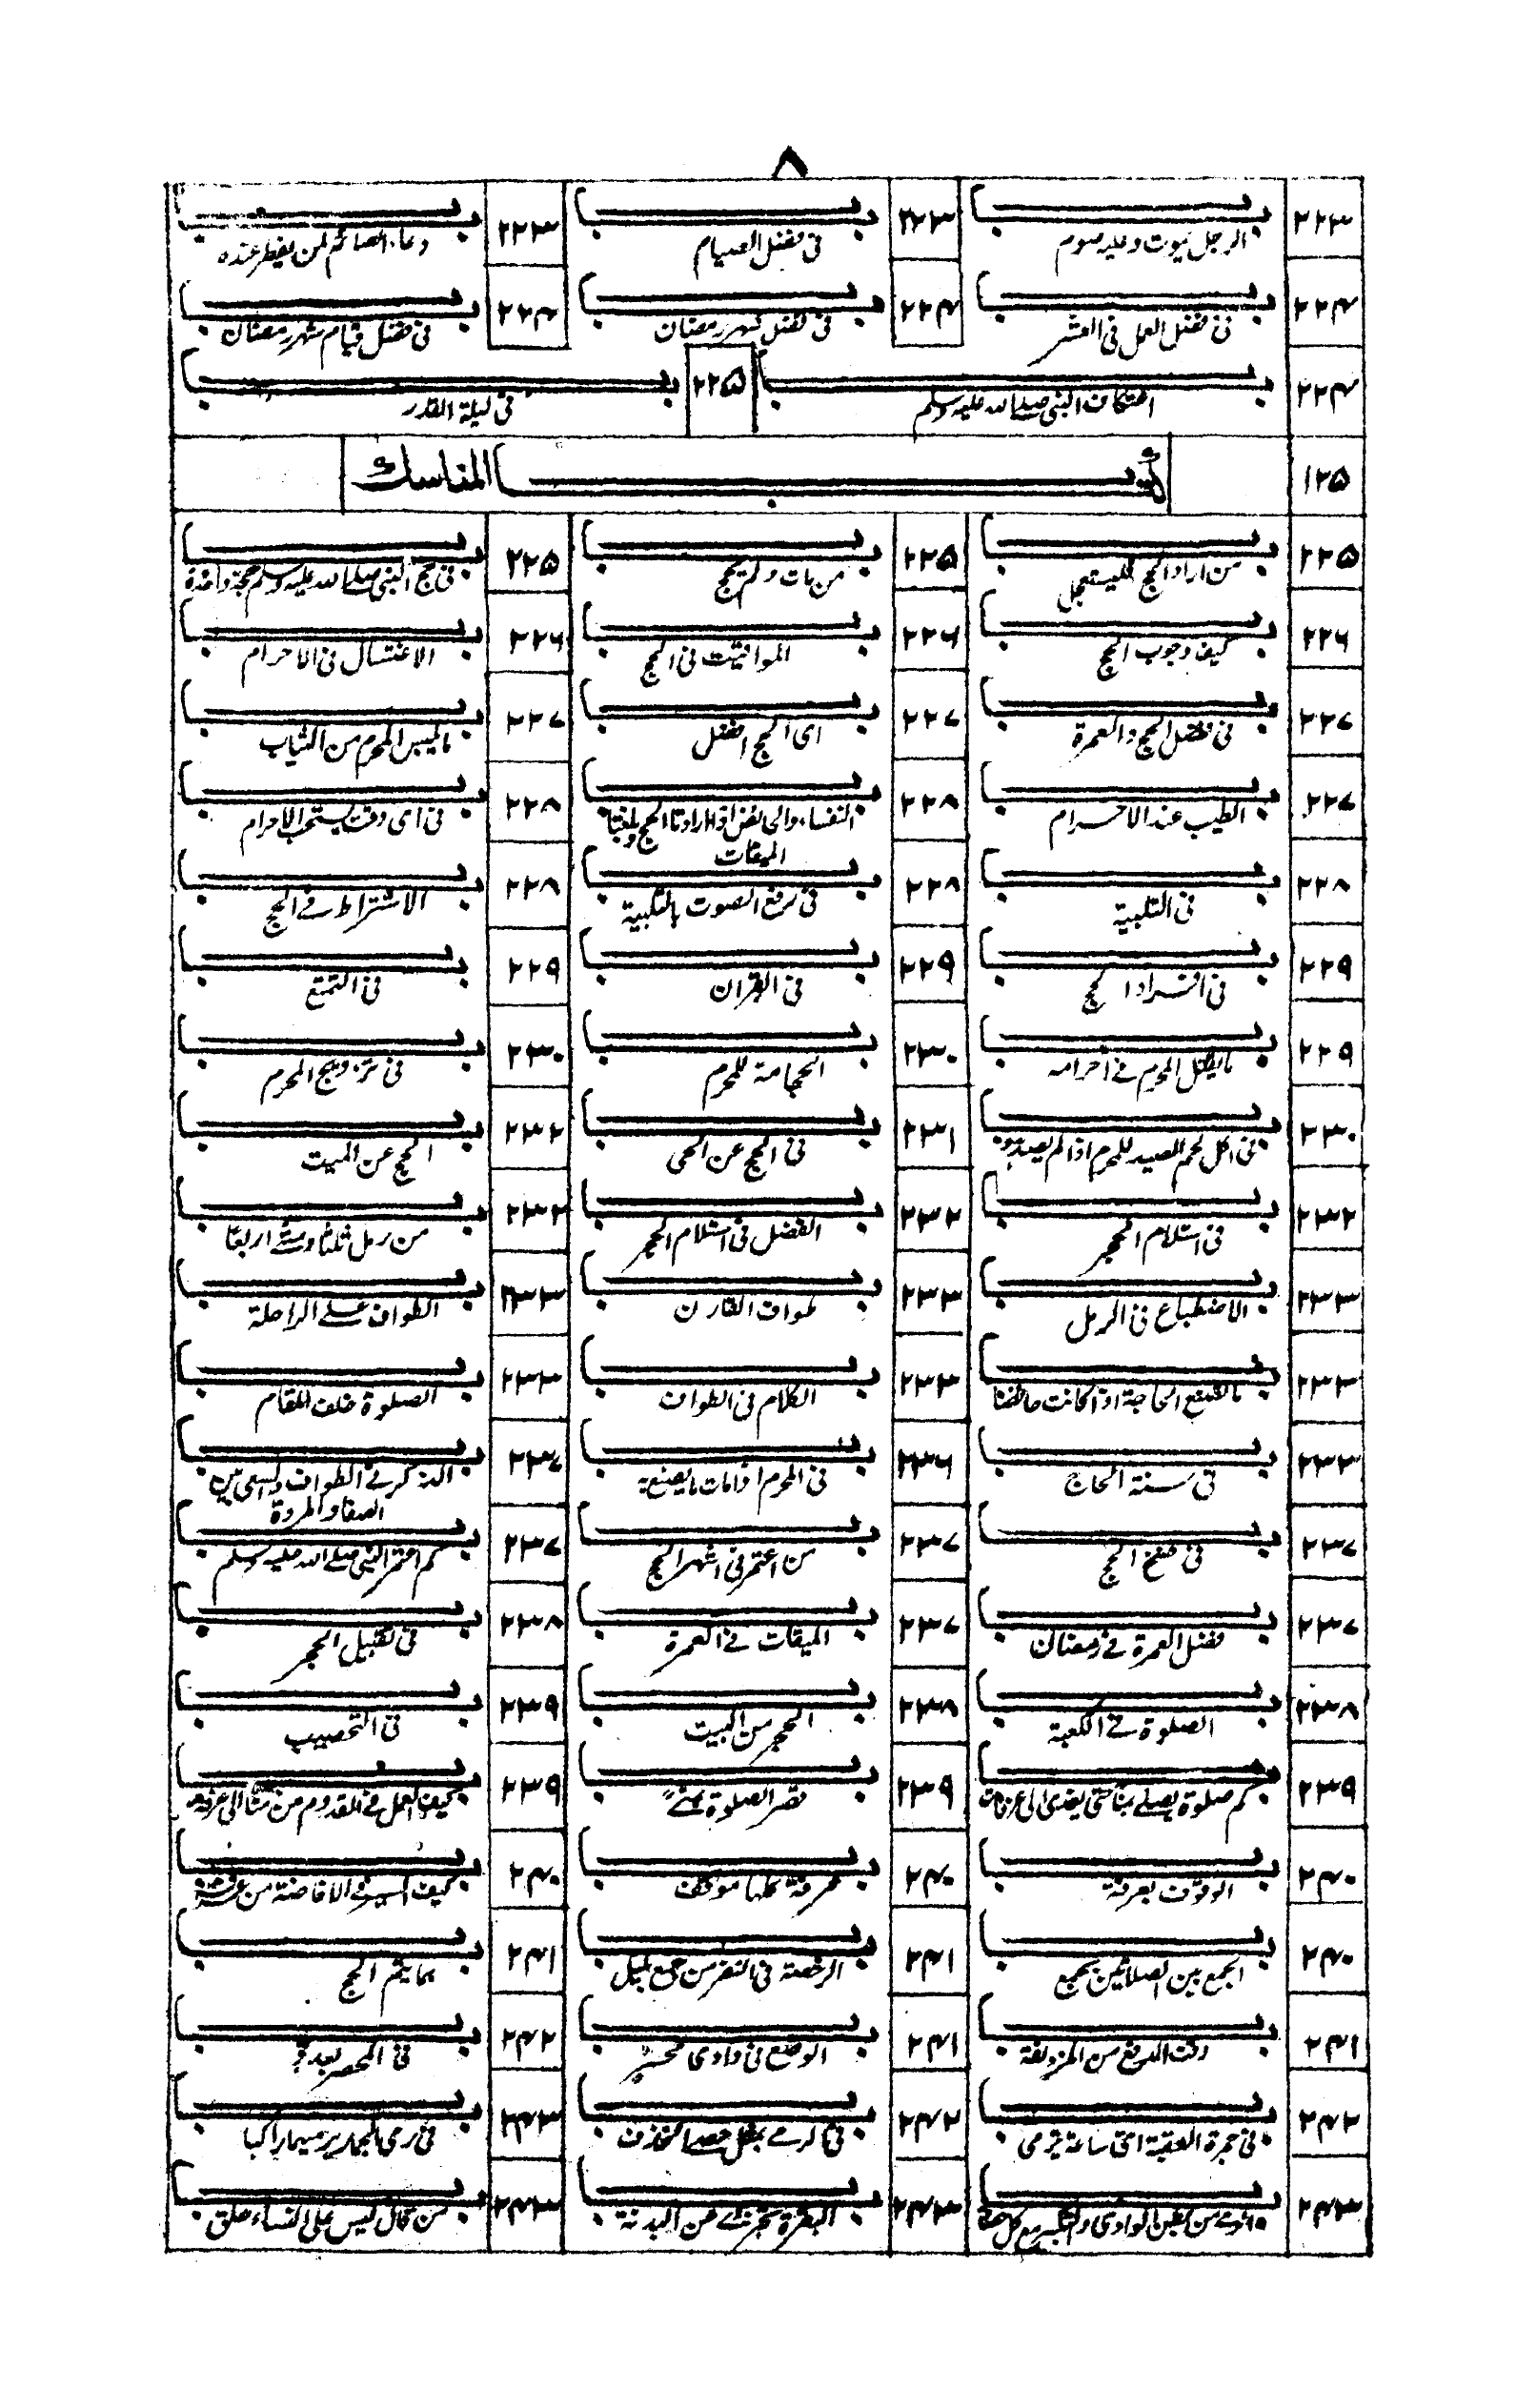 ٨
٢٢٣ باب الرجل يموت وعليه صوم ٢٢٣ باب فى فضل الصيام ٢٢٣ باب دعاء الصائم لمن يفطر عنده
٢٢۴ باب فى فضل العمل فى العشر ٢٢۴ باب فى فضل شهر رمضان ٢٢۴ باب فى فضل قيام شهر رمضان
٢٢۴ باب اعتكاف النبى صلى الله عليه وسلم ٢٢۵ باب فى ليلة القدر
١٢۵ كتاب المناسك
٢٢۵ باب من اراد الحج فليستعجل ٢٢۵ باب من مات ولم يحج ٢٢۵ باب فى حج النبى صلے الله عليه وسلم حجة واحدة
٢٢٦ باب كيف وجوب الحج ٢٢٦ باب المواقيت فى الحج ٢٢٦ باب الاغتسال فى الاحرام
٢٢٧ باب فى فضل الحج والعمرة ٢٢٧ باب اى الحج افضل ٢٢٧ باب ما يلبس المحرم من الثياب
٢٢٧ باب الطيب عند الاحرام ٢٢٨ باب النفساء والحائض اذا ارادتا الحج وبلغتا الميقات ٢٢٨ باب فى اى وقت يستحب الاحرام
٢٢٨ باب فى التلبية ٢٢٨ باب فى رفع الصوت بالتلبية ٢٢٨ باب الاشتراط فے الحج
٢٢٩ باب فى افراد الحج ٢٢٩ باب فى القران ٢٢٩ باب فى التمتع
٢٢٩ باب ما يقتل المحرم فے احرامه ٢٣٠ باب الحجامة للمحرم ٢٣٠ باب فى تزويج المحرم
٢٣٠ باب فى اكل لحم الصيد للمحرم اذا لم يصيد ٢٣١ باب فى الحج عن الحى ٢٣٢ باب الحج عن الميت
٢٣٢ باب فى استلام الحجر ٢٣٢ باب الفضل فى استلام الحجر ٢٣٢ باب من رمل ثلثا ومشے اربعا
٢٣٣ باب الاضطباع فى الرمل ٢٣٣ باب طواف القارن ٢٣٣ باب الطواف علے الراحلة
٢٣٣ باب ما تصنع الحاجة اذا كانت حائضا ٢٣٣ باب الكلام فى الطواف ٢٣٣ باب الصلوة خلف المقام
٢٣٣ باب فى سنة الحاج ٢٣٦ باب فى المحرم اذا مات ما يصنع به ٢٣٧ باب الذكر فے الطواف والسعى بين الصفا والمروة
٢٣٧ باب فى فسخ الحج ٢٣٧ باب من اعتمر فى اشهر الحج ٢٣٧ باب كم اعتمر النبى صلے الله عليه وسلم
٢٣٧ باب فضل العمرة فے رمضان ٢٣٧ باب الميقات فے العمرة ٢٣٨ باب فى تقبيل الحجر
٢٣٨ باب الصلوة فے الكعبة ٢٣٨ باب الحجر من البيت ٢٣٩ باب فى التحصيب
٢٣٩ باب كم صلوة يصلے بمنا حتى يغدى الى عرفات ٢٣٩ باب قصر الصلوة بمنے ٢٣٩ باب كيف العمل فے القدوم من منا الى عرفة
٢۴٠ باب الوقوف بعرفة ٢۴٠ باب عرفة كلها موقف ٢۴٠ باب كيف السير فے الافاضة من عرفة
٢۴٠ باب الجمع بين الصلاتين بجمع ٢۴١ باب الرخصة فى النفر من جمع بليل ٢۴١ باب بما يتم الحج
٢۴١ باب وقت الدفع من المزدلفة ٢۴١ باب الوضع فى وادى محسر ٢۴٢ باب فى المحصر بعدو
٢۴٢ باب فى جمرة العقبة اى ساعة ترمى ٢۴٢ باب فى الرمے بمثل حصے الخذف ٢۴٣ باب فى رمى الجمار يرميها راكبا
٢۴٣ باب الرمے من بطن الوادى والتكبير مع كل حصاة ٢۴٣ باب البقرة تجزئے عن البدنة ٢۴٣ باب من قال ليس على النساء حلق